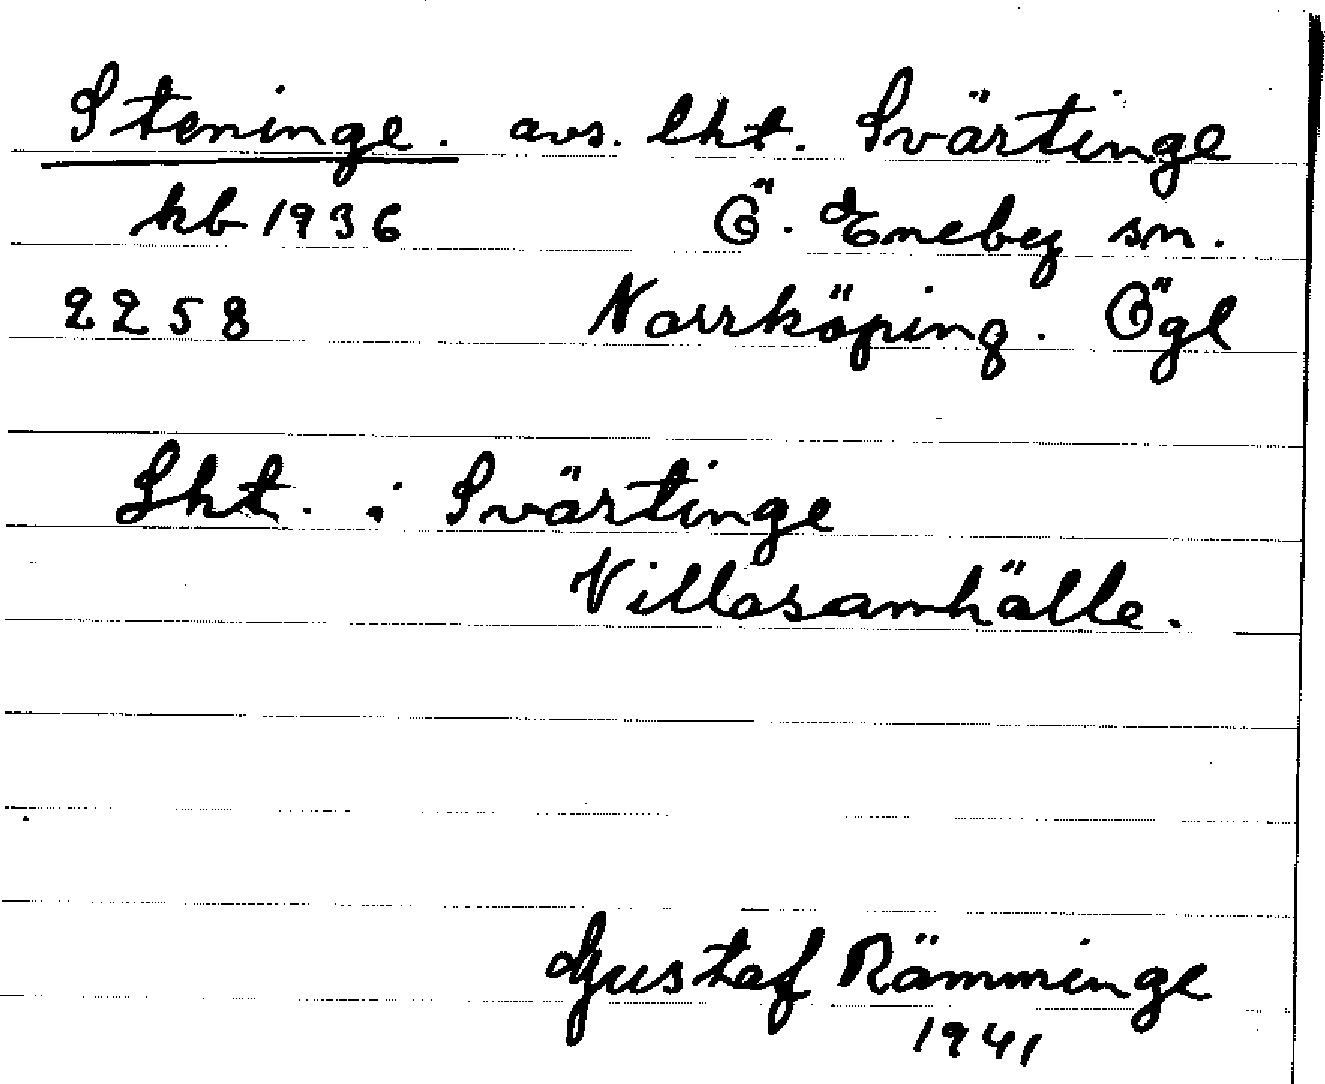 Steninge. avs. lht. Svärtinge
kb 1936 Ö. Eneby sn.
2258 Norrköping. Ögl
Lht. i Svärtinge
Villasamhälle.
Gustaf Rämminge
1941